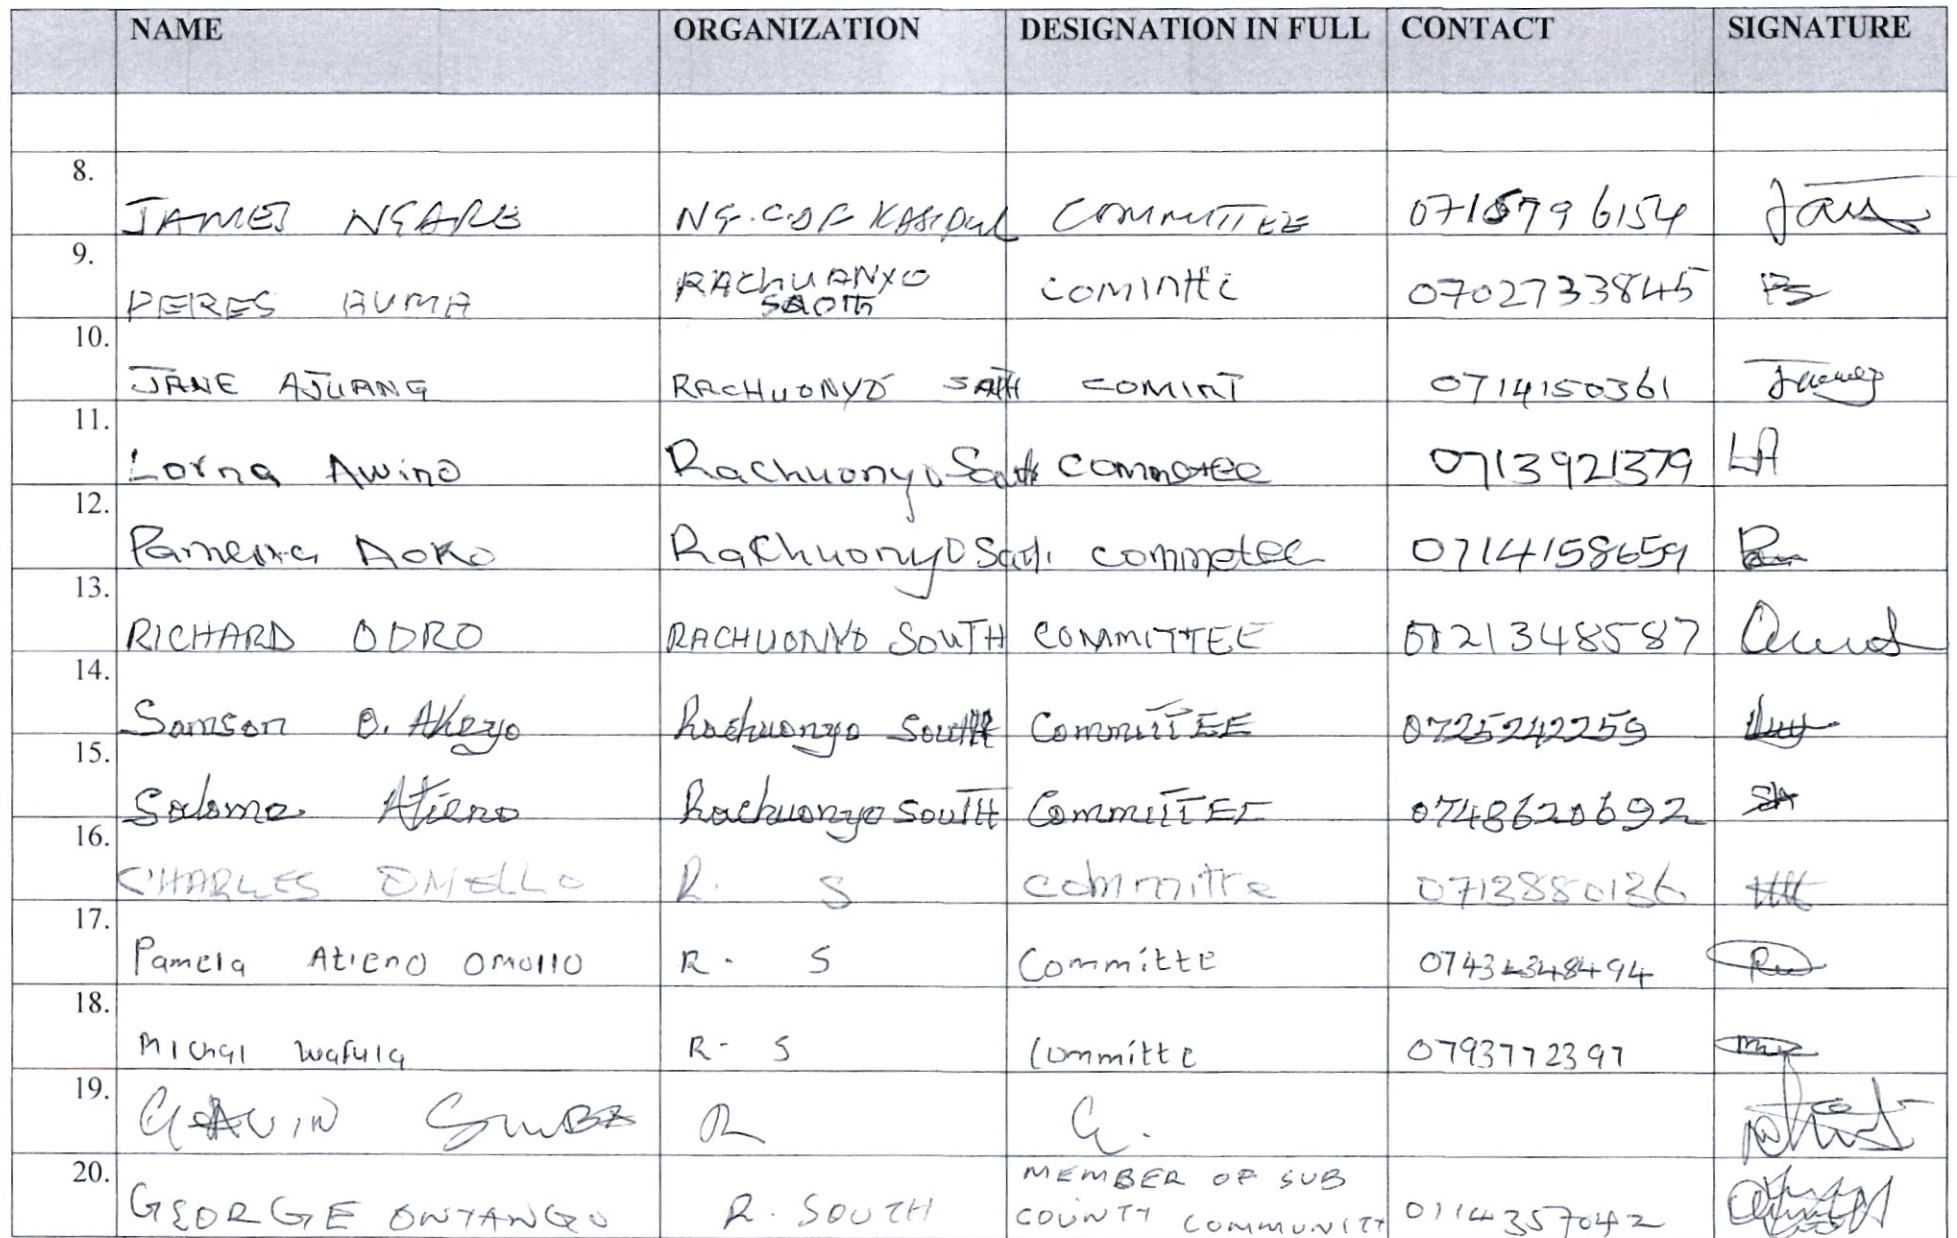 NAME ORGANIZATION DESIGNATION IN FULL CONTACT SIGNATURE
8. JAMES NGARE NG.CDF KASIPUL COMMITTEE 0715796154
9. PERES AUMA RACHUANYO SAOTH COMINTTE 0702733845
10. JANE AJUANG RACHUONYO SATH COMINT 0714150361
11. Lorna Awino Rachuonyo South commetee 0713921379 LA
12. Aoko Rakhuonyo commetee 0714158659
13. RICHARD ODRO RACHUONYO SOUTH COMMITTEE 0721348587
14. Samson O. Akeyo Rachuonyo South CommiTTEE 0725242259
15. Salome Atieno Rachuonyo SouTH CommiTTEE 0748620692 SA
16. CHARLES OMELLO R. S committe 0713880136
17. Pamela Atieno Omollo R. S Committe
18. Michal Wafula R- S Committe 0793772397
19. GAVIN R C.
20. GEORGE ONYANGO R. SOUTH MEMBER OF SUB
COUNTY COMMUNITY 0114357042